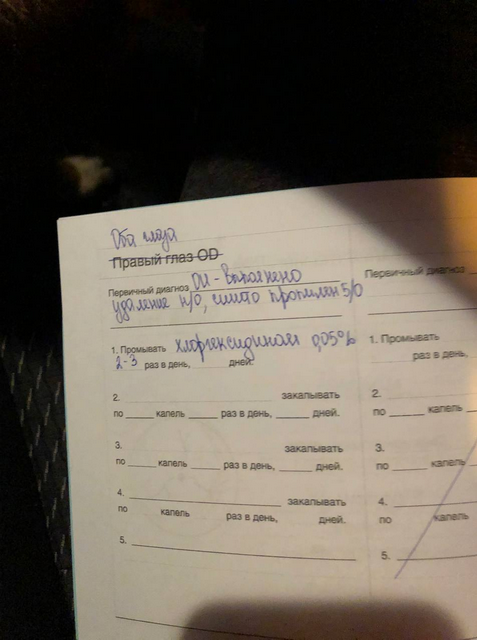 Оба глаза
Правый глаз OD
Первичный диагноз OU - выполнено
удаление н/о, сшито пролилен 5/0
1. Промывать хлоргексидином 0,05%
2-3 раз в день, дней.
2. закапывать
по капель раз в день, дней.
3. закапывать
по капель раз в день, дней.
4. закапывать
по капель раз в день, дней.
5.
Первичный диагноз
1. Промывать
раз в день,
2.
по капель
3.
по капель
4.
по капель
5.